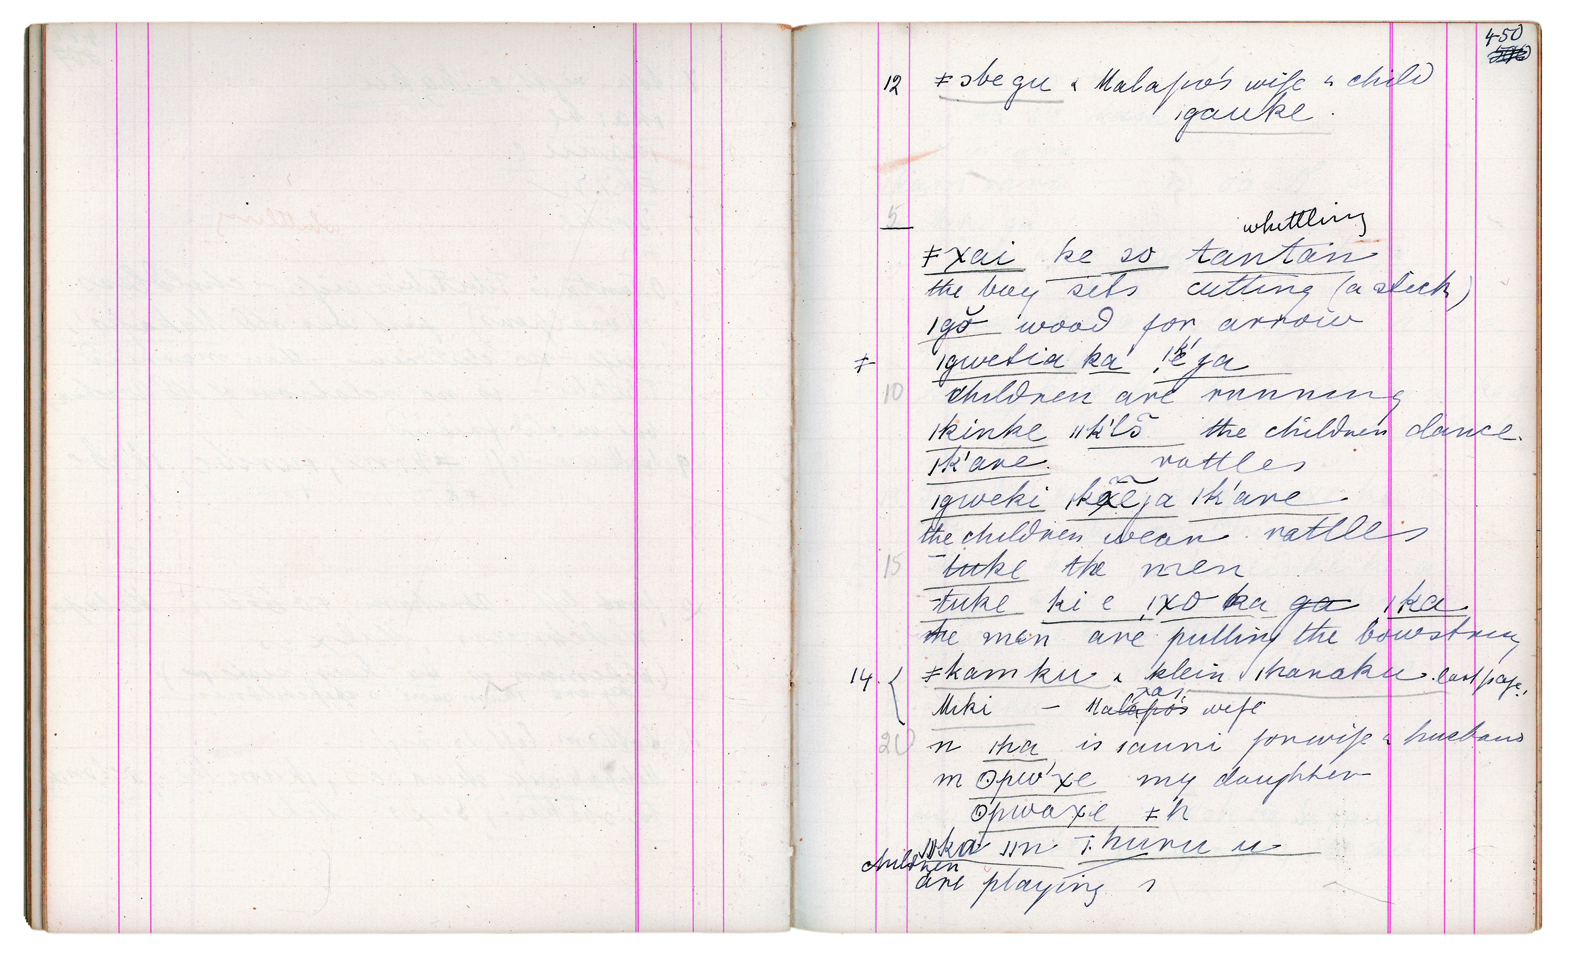 450
12 ǂobegu & Malapo's wife & child
ǀgauke.
5
whittling
ǂxai ke so tantan
the boy sets cutting (a stick)
ǀgŏ wood for arrow
ǂ ǀgwetia ka ja
10 children are running
ǀkinke ǁk'lõ the children dance.
ǀk'are. rattles
ǀgweki ǀk'are.
the children wear rattles
15 tuke the men
tuke ki e ǃxo ka ga ǀka
the men are pulling the bowstring
14. ǂkamku & klein ǀhanaku. last page.
Miki — wife
20 n ǀha is ǀauni for wife & husband
m ʘpwaʼxe my daughter
ʘpwaxe ǂn
ǁn ǃhuru u
children
are playing